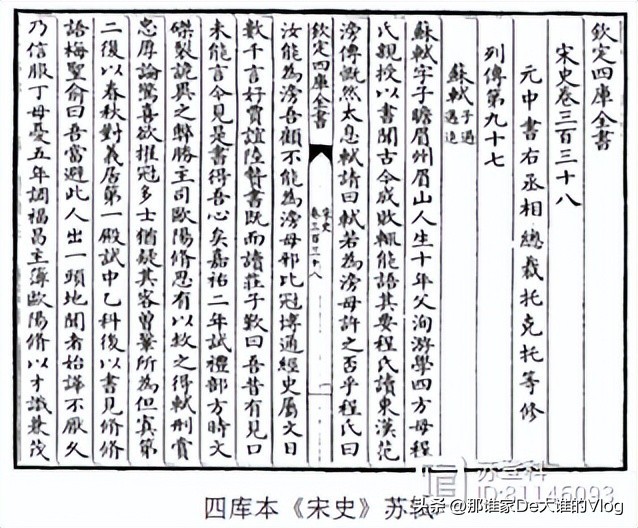 欽定四庫全書
宋史卷三百三十八
元中書右丞相總裁托克托等修
列傳第九十七
蘇軾子過
蘇軾字子瞻眉州眉山人生十年父洵游學四方母程
氏親授以書聞古今成敗輒能語其要程氏讀東漢范
滂傳慨然太息軾請曰軾若為滂母許之否乎程氏曰
欽定四庫全書
宋史
卷三百三十八
一
汝能為滂吾顧不能為滂母邪比冠博通經史屬文日
數千言好賈誼陸贄書既而讀莊子歎曰吾昔有見口
未能言今見是書得吾心矣嘉祐二年試禮部方時文
磔裂詭異之弊勝主司歐陽修思有以救之得軾刑賞
忠厚論驚喜欲擢冠多士猶疑其客曾鞏所為但寘第
二復以春秋對義居第一殿試中乙科後以書見修修
語梅聖俞曰吾當避此人出一頭地聞者始譁不厭久
乃信服丁母憂五年調福昌主簿歐陽修以才識兼茂
四库本《宋史》苏
头条 @那谁家De犬谁的Vlog
ID:81146093